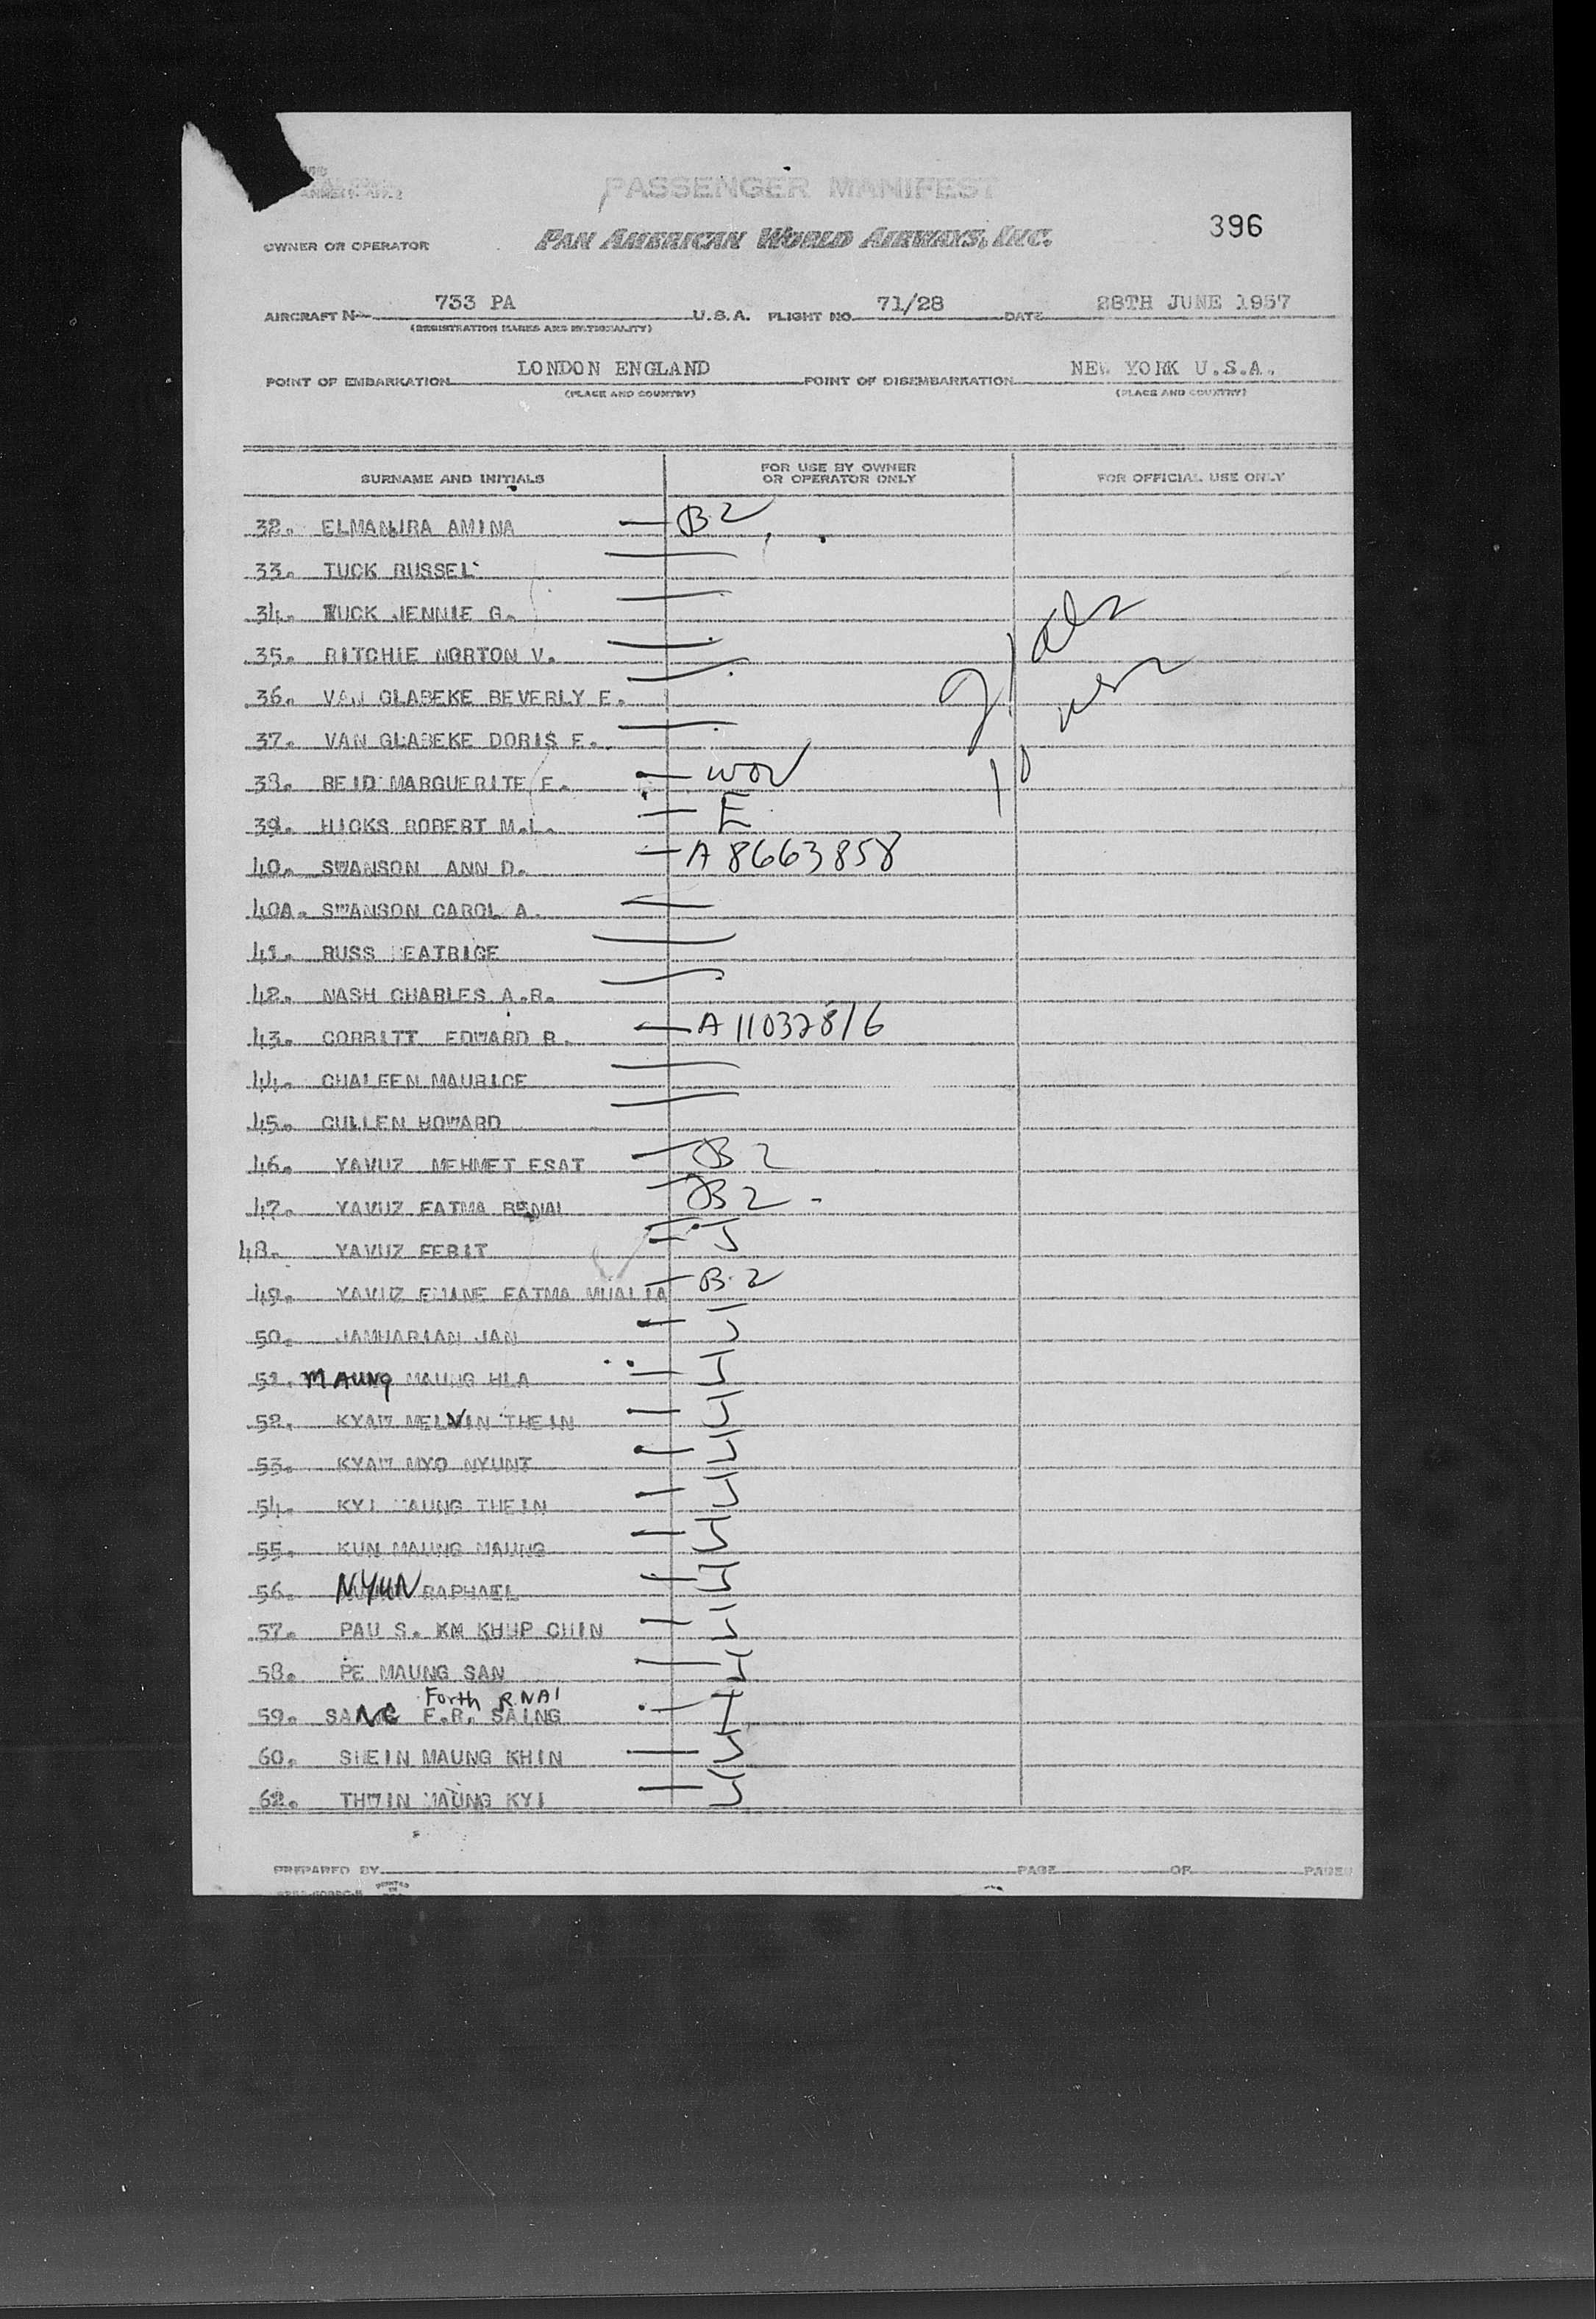 PASSENGER MANIFEST
OWNER OR OPERATOR PAN AMERICAN WORLD AIRWAYS, INC. 396
AIRCRAFT N 733 PA U.S.A. FLIGHT NO. 71/28 DATE 28TH JUNE 1957
(REGISTRATION MARKS AND NATIONALITY)
POINT OF EMBARKATION LONDON ENGLAND POINT OF DISEMBARKATION NEW YORK U.S.A.
(PLACE AND COUNTRY) (PLACE AND COUNTRY)
SURNAME AND INITIALS FOR USE BY OWNER OR OPERATOR ONLY FOR OFFICIAL USE ONLY
32. ELMANJRA AMINA B2
33. TUCK RUSSEL
34. TUCK JENNIE G.
35. RITCHIE NORTON V.
36. VAN GLABEKE BEVERLY E.
37. VAN GLABEKE DORIS E.
38. REID MARGUERITE E.
39. HICKS ROBERT M.L. E
40. SWANSON ANN D. A 8663858
40A. SWANSON CAROL A.
41. RUSS BEATRICE
42. NASH CHARLES A.R.
43. CORBITT EDWARD R. A 11032816
44. CHALEEN MAURICE
45. CULLEN HOWARD
46. YAVUZ MEHMET ESAT B2
47. YAVUZ FATMA BENAL B2
48. YAVUZ FERIT J
49. YAVUZ EMINE FATMA MUALLA B2
50. JAMHARIAN JAN J
51. MAUNG MAUNG HLA
52. KYAW MELVIN THEIN
53. KYAW MYO NYUNT
54. KYI MAUNG THEIN
55. KUN MAUNG MAUNG
56. NYUN RAPHAEL
57. PAU S. KM KHUP CHIN
58. PE MAUNG SAN
Forth RNAI
59. SANG E.R. SAING
60. SHEIN MAUNG KHIN
62. THWIN MAUNG KYI
PREPARED BY PAGE OF PAGES